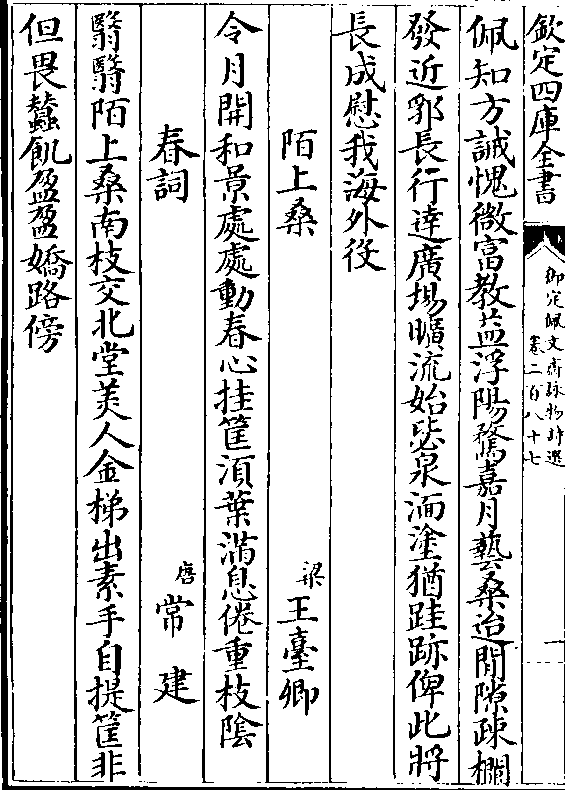 欽定四庫全書
御定佩文齋詠物詩選
卷二百八十七
一
佩知方誠愧微富教益浮陽騖嘉月藝桑迨閒隙疎欄
發近郛長行達廣場曠流始毖泉湎塗猶跬跡俾此將
長成慰我海外役
陌上桑
梁 王臺卿
令月開和景處處動春心挂筐須葉滿息倦重枝陰
春詞
唐 常建
翳翳陌上桑南枝交北堂美人金梯出素手自提筐非
但畏蠶飢盈盈嬌路傍